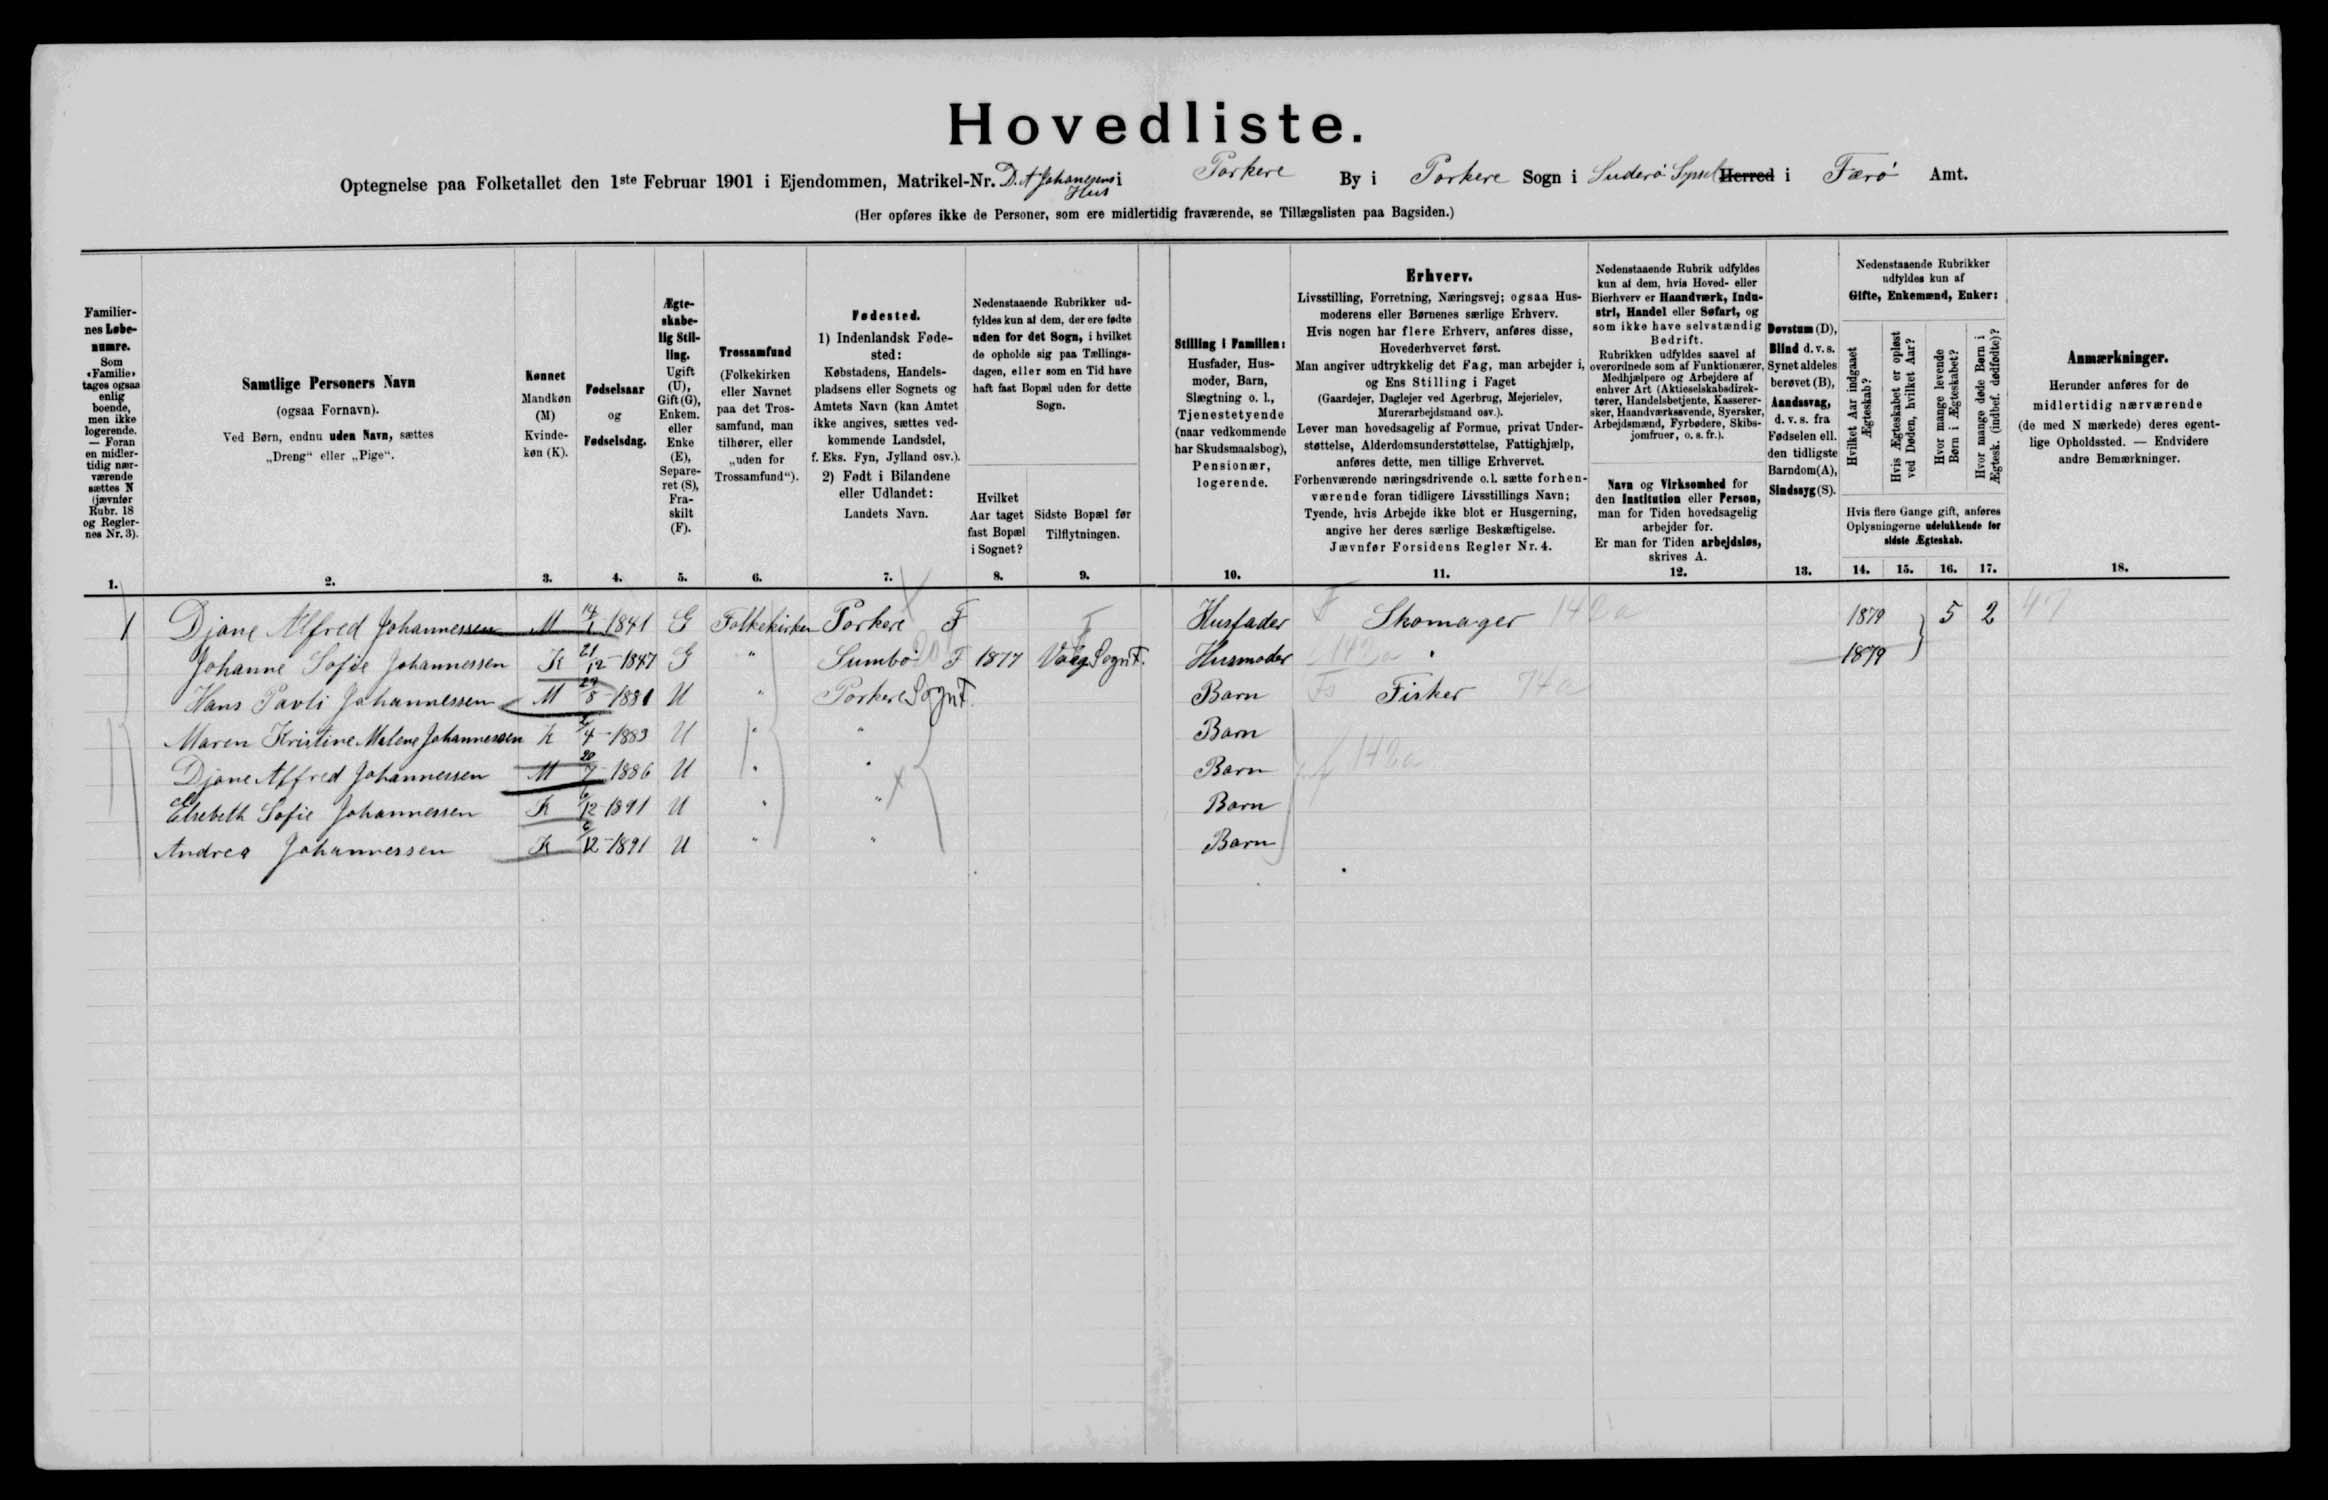 Hovedliste.
Optegnelse paa Folketallet den 1ste Februar 1901 i Ejendommen, Matrikel-Nr. D. A Johanesens Hus i Porkere By i Porkere Sogn i Suderö Syssel Herred i Færö Amt.
(Her opføres ikke de Personer, som ere midlertidig fraværende, se Tillægslisten paa Bagsiden.)
Familiernes Løbenumre.
Som «Familie» tages ogsaa enlig boende, men ikke logerende. — Foran en midlertidig nærværende sættes N (jævnfør Rubr. 18 og Reglernes Nr. 3).
1.
Samtlige Personers Navn
(ogsaa Fornavn).
Ved Børn, endnu uden Navn, sættes
„Dreng“ eller „Pige“.
2.
Kønnet
Mandkøn (M)
Kvindekøn (K).
3.
Fødselsaar
og
Fødselsdag.
4.
Ægteskabelig Stilling.
Ugift (U), Gift (G), Enkem. eller Enke (E), Separeret (S), Fraskilt (F).
5.
Trossamfund
(Folkekirken eller Navnet paa det Trossamfund, man tilhører, eller „uden for Trossamfund“).
6.
Fødested.
1) Indenlandsk Fødested:
Købstadens, Handelspladsens eller Sognets og Amtets Navn (kan Amtet ikke angives, sættes vedkommende Landsdel, f. Eks. Fyn, Jylland osv.).
2) Født i Bilandene eller Udlandet:
Landets Navn.
7.
Nedenstaaende Rubrikker udfyldes kun af dem, der ere fødte uden for det Sogn, i hvilket de opholde sig paa Tællingsdagen, eller som en Tid have haft fast Bopæl uden for dette Sogn.
Hvilket Aar taget fast Bopæl i Sognet?
8.
Sidste Bopæl før Tilflytningen.
9.
Stilling i Familien:
Husfader, Husmoder, Barn, Slægtning o. l., Tjenestetyende (naar vedkommende har Skudsmaalsbog), Pensionær, logerende.
10.
Erhverv.
Livsstilling, Forretning, Næringsvej; ogsaa Husmoderens eller Børnenes særlige Erhverv.
Hvis nogen har flere Erhverv, anføres disse, Hovederhvervet først.
Man angiver udtrykkelig det Fag, man arbejder i, og Ens Stilling i Faget
(Gaardejer, Daglejer ved Agerbrug, Mejerielev, Murerarbejdsmand osv.).
Lever man hovedsagelig af Formue, privat Understøttelse, Alderdomsunderstøttelse, Fattighjælp, anføres dette, men tillige Erhvervet.
Forhenværende næringsdrivende o. l. sætte forhenværende foran tidligere Livsstillings Navn;
Tyende, hvis Arbejde ikke blot er Husgerning, angive her deres særlige Beskæftigelse.
Jævnfør Forsidens Regler Nr. 4.
11.
Nedenstaaende Rubrik udfyldes kun af dem, hvis Hoved- eller Bierhverv er Haandværk, Industri, Handel eller Søfart, og som ikke have selvstændig Bedrift.
Rubrikken udfyldes saavel af overordnede som af Funktionærer, Medhjælpere og Arbejdere af enhver Art (Aktieselskabsdirektører, Handelsbetjente, Kasserersker, Haandværkssvende, Syersker, Arbejdsmænd, Fyrbødere, Skibsjomfruer, o. s. fr.).
Navn og Virksomhed for den Institution eller Person, man for Tiden hovedsagelig arbejder for.
Er man for Tiden arbejdsløs, skrives A.
12.
Døvstum (D), Blind d. v. s. Synet aldeles berøvet (B), Aandssvag, d. v. s. fra Fødselen ell. den tidligste Barndom (A), Sindssyg (S).
13.
Nedenstaaende Rubrikker udfyldes kun af
Gifte, Enkemænd, Enker:
Hvilket Aar indgaaet Ægteskab?
Hvis Ægteskabet er opløst ved Døden, hvilket Aar?
Hvor mange levende Børn i Ægteskabet?
Hvor mange døde Børn i Ægtesk. (indbef. dødfødte)?
Hvis flere Gange gift, anføres Oplysningerne udelukkende for sidste Ægteskab.
14. 15. 16. 17.
Anmærkninger.
Herunder anføres for de midlertidig nærværende (de med N mærkede) deres egentlige Opholdssted. — Endvidere andre Bemærkninger.
18.
1 Djone Alfred Johannessen M 14/1 1841 G Folkekirken Porkere F Husfader F Skomager 142a 1879 5 2 47
Johanne Sofie Johannessen K 21/12-1847 G " Sumbö F 1877 Vaag Sogn F. Husmoder 142a " 1879
Hans Pavli Johannessen M 29/8-1881 U " Porkere Sogn F. Barn Fs Fisker 74a
Maren Kristine Malene Johannessen K 4-1883 U " " Barn
Djone Alfred Johannessen M 20/7-1886 U " " Barn 142a
Elsebeth Sofie Johannessen K 6/12-1891 U " " Barn
Andrea Johannessen K 6/12-1891 U " " Barn